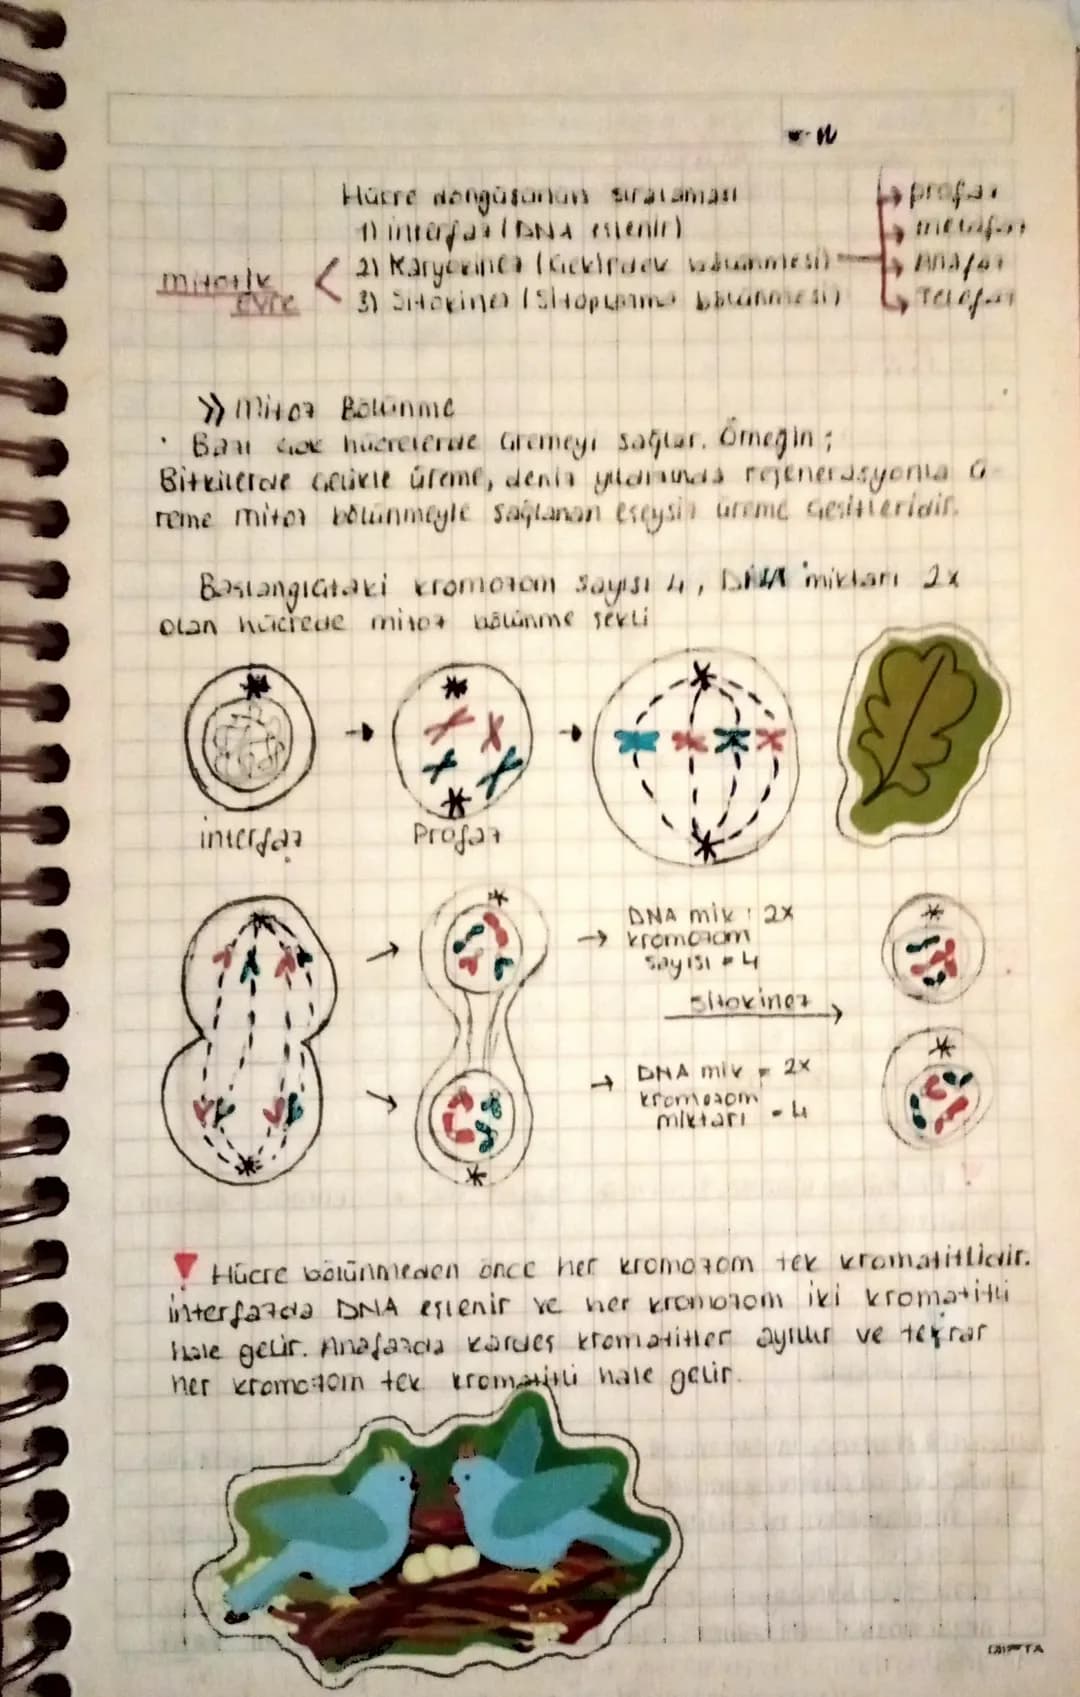 Hücre döngüsünün sıralaması
1) interfaz (DNA eşlenir)
mitotik evre
2) Karyokinez (Çekirdek bölünmesi)
3) Sitokinez (Sitoplazma bölünmesi)
→ profaz
→ metafaz
→ Anafaz
→ Telofaz
>> Mitoz Bölünme
• Bazı çok hücrelerde üremeyi sağlar. Örneğin;
Bitkilerde çelikle üreme, deniz yıldızında rejenerasyonla ü-
reme mitoz bölünmeyle sağlanan eşeysiz üreme çeşitleridir.
Başlangıçtaki kromozom sayısı 4, DNA miktarı 2x
olan hücrede mitoz bölünme şekli
interfaz
Profaz
DNA mik : 2x
kromozom
sayısı = 4
sitokinez
DNA mik = 2x
kromozom
miktarı = 4
Hücre bölünmeden önce her kromozom tek kromatitlidir.
interfazda DNA eşlenir ve her kromozom iki kromatitli
hale gelir. Anafazda kardeş kromatitler ayrılır ve tekrar
her kromozom tek kromatitli hale gelir.